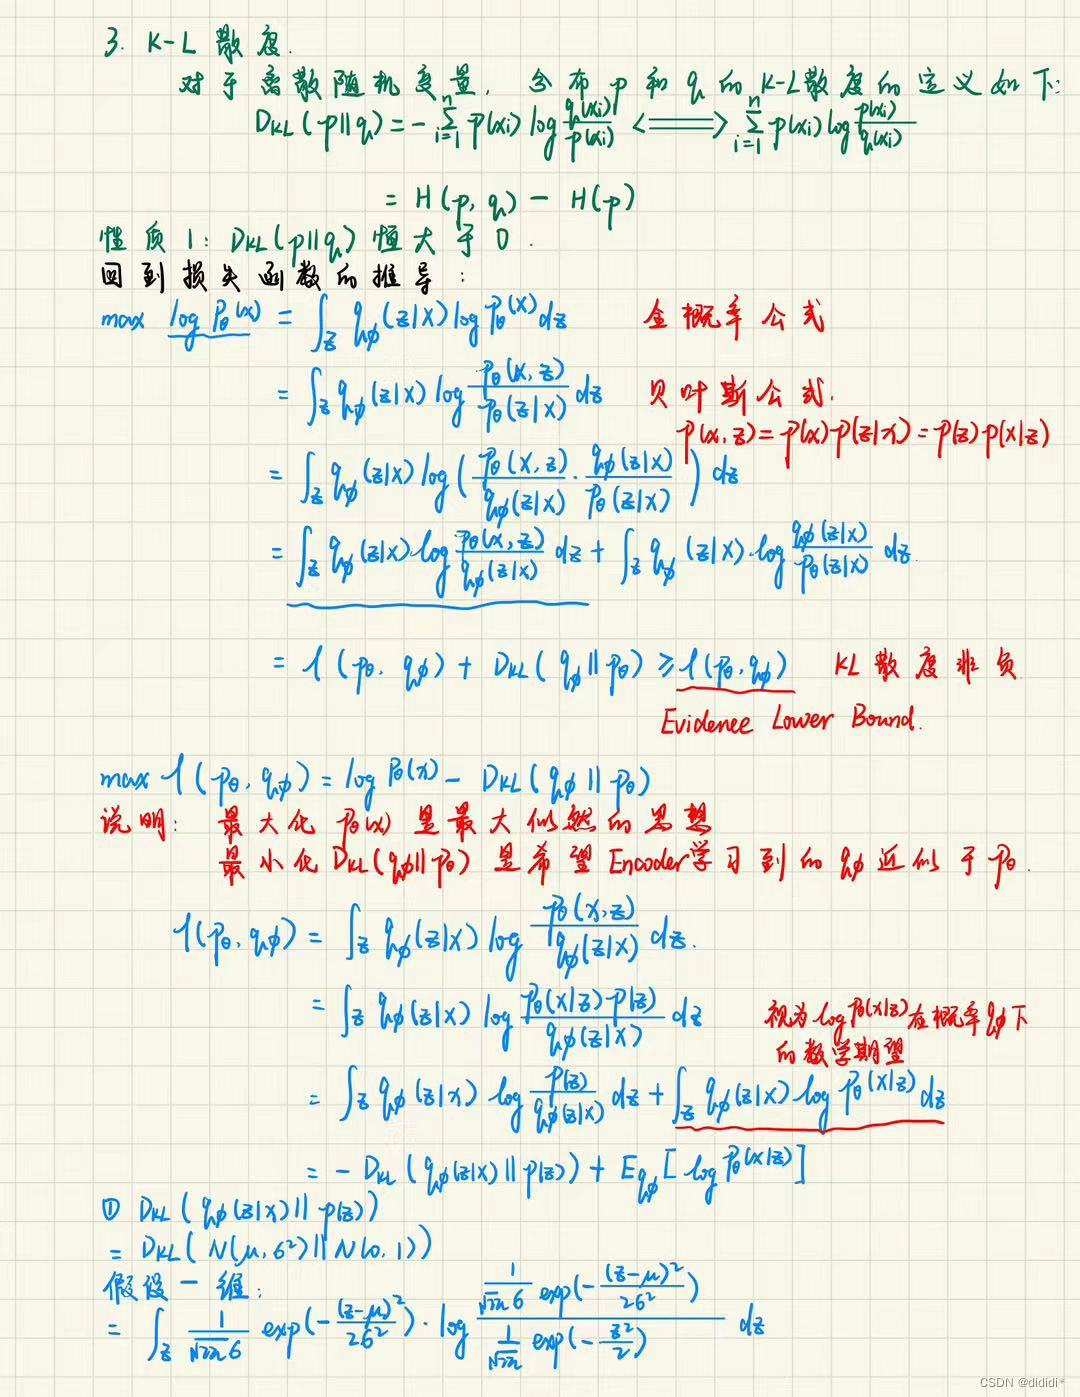 3. K-L 散度.
对于离散随机变量, 分布 p 和 q 的 K-L散度的定义如下:
D_KL(p||q) = -∑_{i=1}^{n} p(x_i) log q(x_i)/p(x_i) <===> ∑_{i=1}^{n} p(x_i) log p(x_i)/q(x_i)
= H(p, q) - H(p)
性质1: D_KL(p||q) 恒大于0.
回到损失函数的推导:
max log P_θ(x) = ∫_z q_φ(z|x) log P_θ(x) dz 全概率公式
= ∫_z q_φ(z|x) log P_θ(x,z)/P_θ(z|x) dz 贝叶斯公式.
p(x,z) = p(x)p(z|x) = p(z)p(x|z)
= ∫_z q_φ(z|x) log( P_θ(x,z)/q_φ(z|x) · q_φ(z|x)/P_θ(z|x) ) dz
= ∫_z q_φ(z|x)·log P_θ(x,z)/q_φ(z|x) dz + ∫_z q_φ(z|x)·log q_φ(z|x)/P_θ(z|x) dz.
= l(p_θ, q_φ) + D_KL(q_φ||p_θ) ≥ l(p_θ, q_φ) KL散度非负
Evidence Lower Bound.
max l(p_θ, q_φ) = log P_θ(x) - D_KL(q_φ||p_θ)
说明: 最大化 p_θ(x) 是最大似然的思想
最小化 D_KL(q_φ||p_θ) 是希望Encoder学习到的 q_φ 近似于 p_θ.
l(p_θ, q_φ) = ∫_z q_φ(z|x) log P_θ(x,z)/q_φ(z|x) dz.
= ∫_z q_φ(z|x) log P_θ(x|z)p(z)/q_φ(z|x) dz 视为 log P_θ(x|z) 在概率 q_φ 下
的数学期望
= ∫_z q_φ(z|x) log p(z)/q_φ(z|x) dz + ∫_z q_φ(z|x) log P_θ(x|z) dz
= - D_KL(q_φ(z|x)||p(z)) + E_{q_φ}[log P_θ(x|z)]
① D_KL(q_φ(z|x)||p(z))
= D_KL(N(μ, σ²)||N(0, 1))
假设一维:
= ∫_z 1/(√2π σ) exp(-(z-μ)²/2σ²)·log [1/(√2π σ) exp(-(z-μ)²/2σ²)] / [1/√2π exp(-z²/2)] dz
CSDN @dididi*